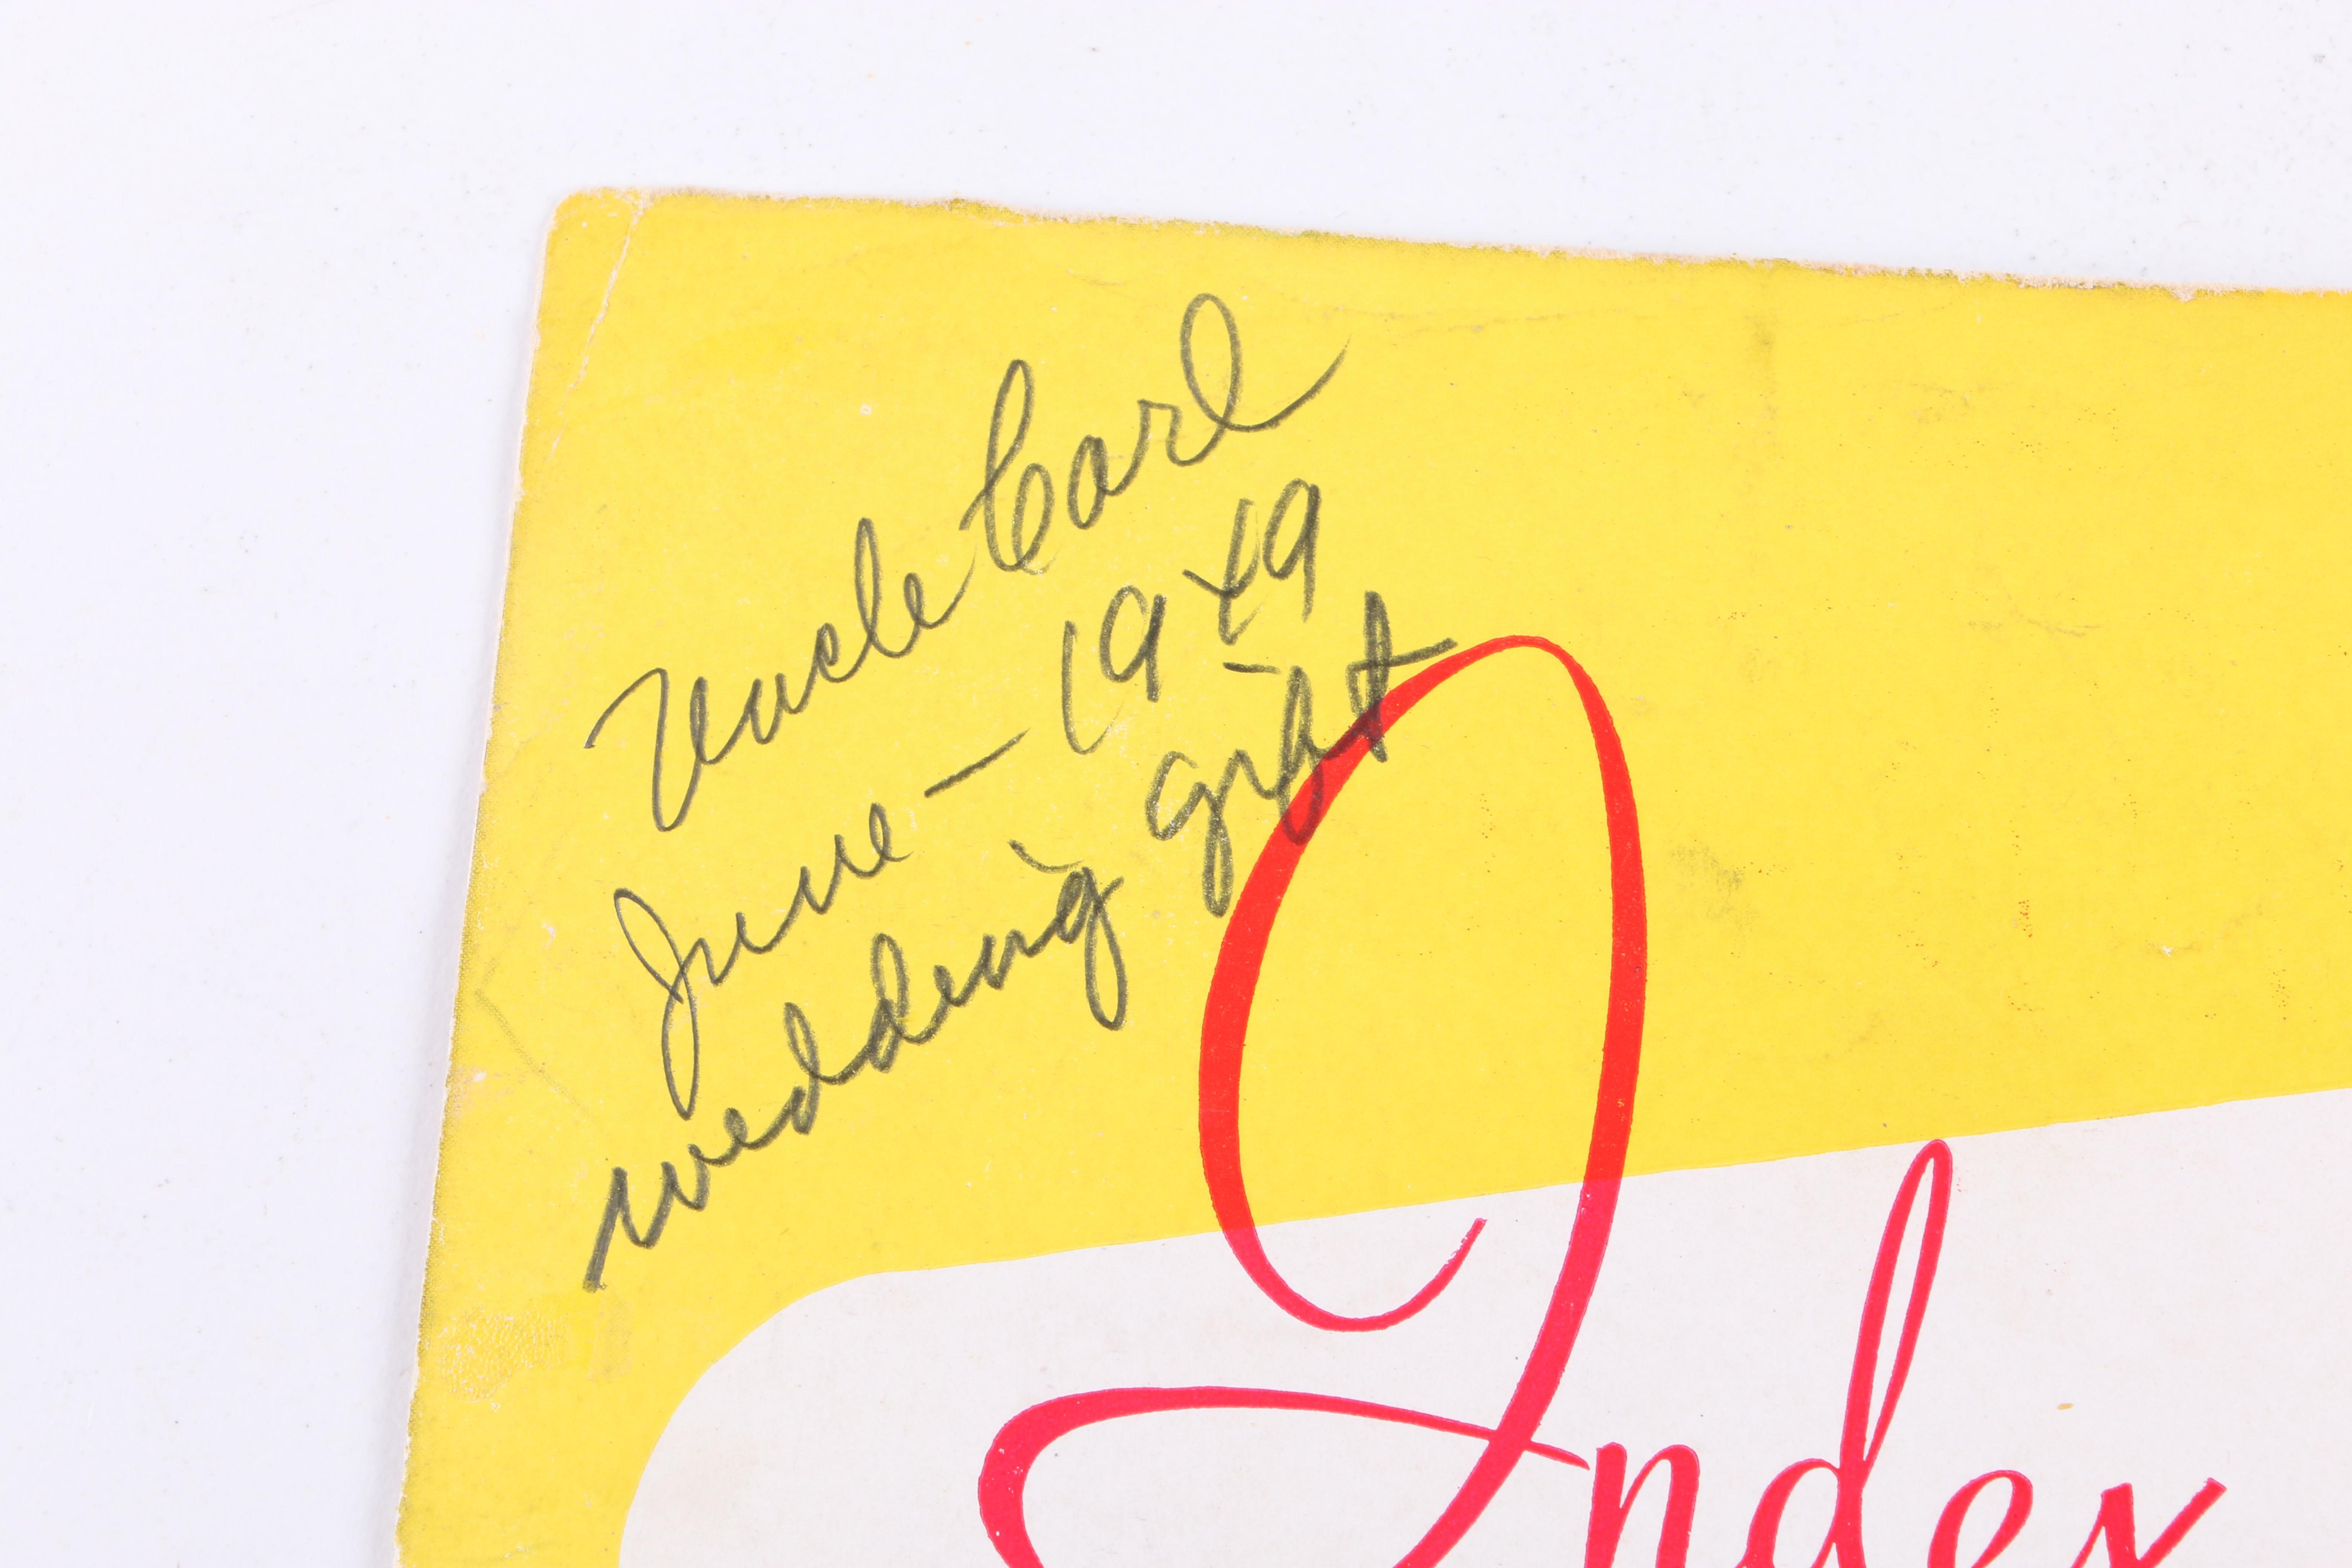 Uncle Carl
June - 1949
wedding gift
Index